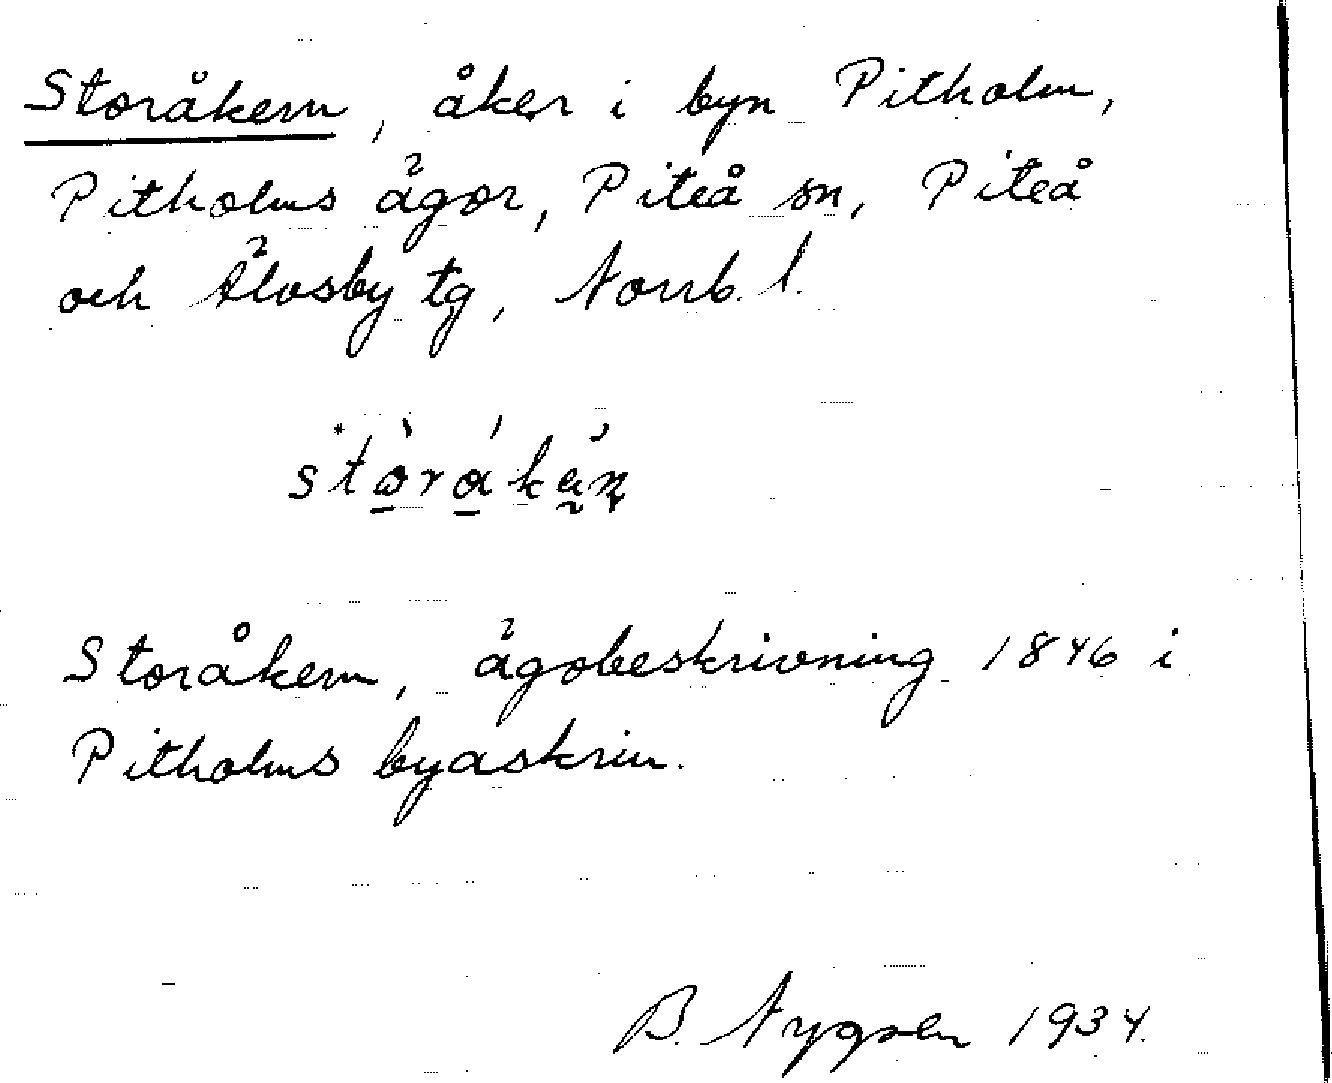 Storåkern, åker i byn Pitholm,
Pitholms ägor, Piteå sn, Piteå
och Älvsby tg, Norrb. l.
Storåkern, ägobeskrivning 1846 i
Pitholms byaskrin.
B. Nygren 1934.